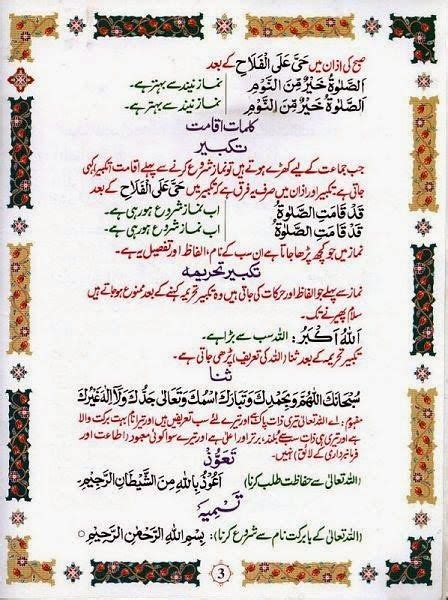 صبح کی اذان میں حَیَّ عَلَی الْفَلَاح کے بعد
اَلصَّلٰوةُ خَیْرٌ مِّنَ النَّوْمِ نماز نیند سے بہتر ہے۔
اَلصَّلٰوةُ خَیْرٌ مِّنَ النَّوْمِ نماز نیند سے بہتر ہے۔
کلمات اقامت
تکبیر
جب جماعت کے لیے کھڑے ہوتے ہیں تو نماز شروع کرنے سے پہلے اقامت (تکبیر) کہی
جاتی ہے۔ تکبیر اور اذان میں صرف یہ فرق ہے کہ تکبیر میں حَیَّ عَلَی الْفَلَاح کے بعد
قَدْ قَامَتِ الصَّلٰوةُ اب نماز شروع ہو رہی ہے۔
قَدْ قَامَتِ الصَّلٰوةُ اب نماز شروع ہو رہی ہے۔
نماز میں جو کچھ پڑھا جاتا ہے ان سب کے نام، الفاظ اور تفصیل یہ ہے۔
تکبیر تحریمہ
نماز سے پہلے جو الفاظ اور حرکات کی جاتی ہیں وہ تکبیر تحریمہ کہنے کے بعد ممنوع ہو جاتے ہیں
سلام پھیرنے تک۔
اَللّٰهُ اَکْبَرُ: اللہ سب سے بڑا ہے۔
تکبیر تحریمہ کے بعد ثنا (اللہ کی تعریف) پڑھی جاتی ہے۔
ثنا
سُبْحَانَكَ اللّٰهُمَّ وَبِحَمْدِكَ وَتَبَارَكَ اسْمُكَ وَتَعَالٰی جَدُّكَ وَلَآ اِلٰهَ غَیْرُكَ
مفہوم: اے اللہ تعالیٰ تیری ذات پاک ہے اور تیرے لئے سب تعریفیں ہیں اور تیرا نام بہت برکت والا
ہے اور تیری ہی ذات سب سے بلند، برتر اور اعلیٰ ہے اور تیرے سوا کوئی معبود (اطاعت اور
فرمانبرداری کے لائق) نہیں۔
تَعَوُّذ
(اللہ تعالیٰ سے حفاظت طلب کرنا) اَعُوْذُ بِاللّٰهِ مِنَ الشَّیْطَانِ الرَّجِیْمِ۔
تَسْمِیَہ
(اللہ تعالیٰ کے بابرکت نام سے شروع کرنا): بِسْمِ اللّٰهِ الرَّحْمٰنِ الرَّحِیْمِ ○
3